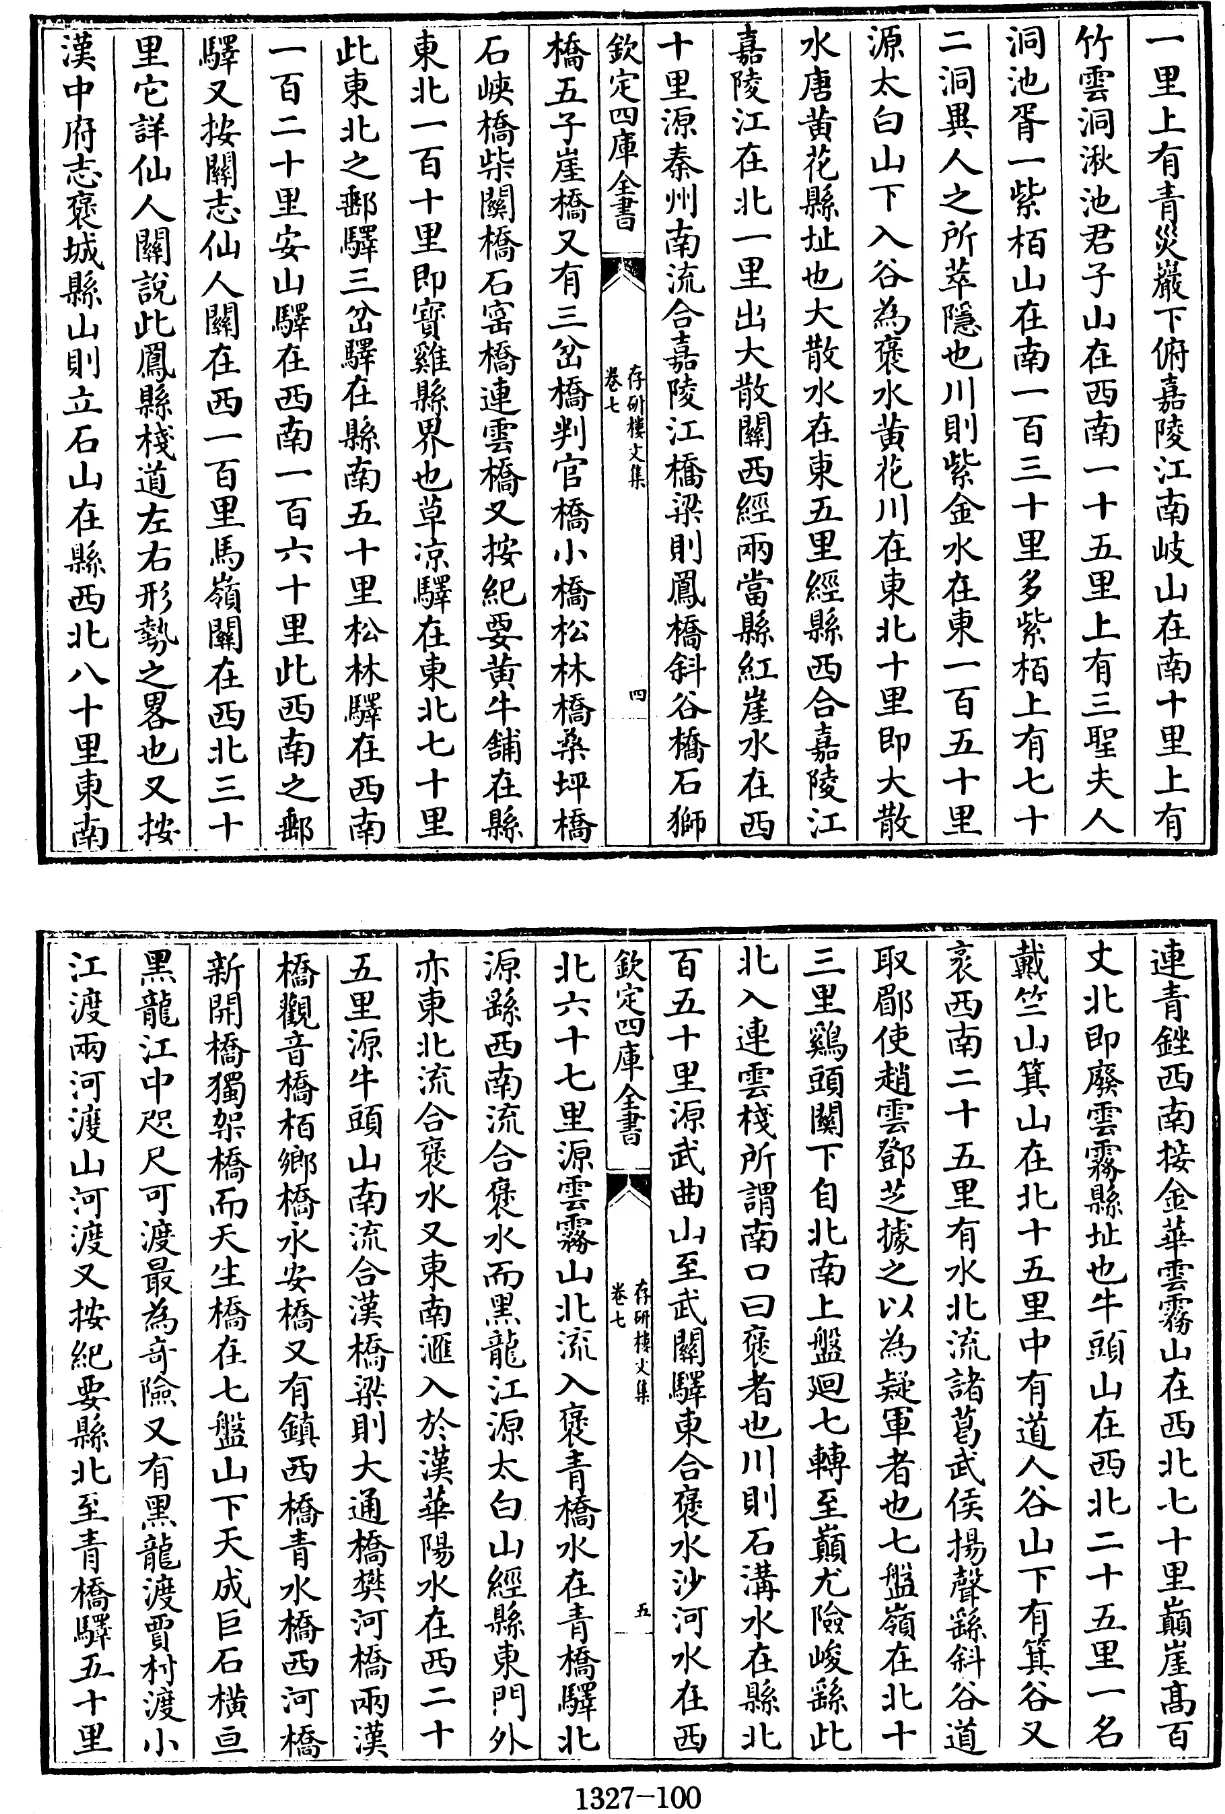 一里上有青災巖下俯嘉陵江南岐山在南十里上有
竹雲洞湫池君子山在西南一十五里上有三聖夫人
洞池胥一紫栢山在南一百三十里多紫栢上有七十
二洞異人之所萃隱也川則紫金水在東一百五十里
源太白山下入谷為褒水黄花川在東北十里即大散
水唐黄花縣址也大散水在東五里經縣西合嘉陵江
嘉陵江在北一里出大散關西經兩當縣紅崖水在西
十里源秦州南流合嘉陵江橋梁則鳳橋斜谷橋石獅
欽定四庫全書
存研樓文集
卷七
四
橋五子崖橋又有三岔橋判官橋小橋松林橋桑坪橋
石峽橋柴關橋石窑橋連雲橋又按紀要黄牛舖在縣
東北一百十里即寶雞縣界也草凉驛在東北七十里
此東北之郵驛三岔驛在縣南五十里松林驛在西南
一百二十里安山驛在西南一百六十里此西南之郵
驛又按關志仙人關在西一百里馬嶺關在西北三十
里它詳仙人關說此鳳縣棧道左右形勢之畧也又按
漢中府志褒城縣山則立石山在縣西北八十里東南
連青銼西南接金華雲霧山在西北七十里巔崖髙百
丈北即廢雲霧縣址也牛頭山在西北二十五里一名
戴竺山箕山在北十五里中有道人谷山下有箕谷又
袤西南二十五里有水北流諸葛武侯揚聲繇斜谷道
取郿使趙雲鄧芝據之以為疑軍者也七盤嶺在北十
三里鷄頭關下自北南上盤廻七轉至巔尤險峻繇此
北入連雲棧所謂南口曰褒者也川則石溝水在縣北
百五十里源武曲山至武關驛東合褒水沙河水在西
欽定四庫全書
存研樓文集
卷七
五
北六十七里源雲霧山北流入褒青橋水在青橋驛北
源縣西南流合褒水而黑龍江源太白山經縣東門外
亦東北流合褒水又東南滙入於漢華陽水在西二十
五里源牛頭山南流合漢橋梁則大通橋樊河橋兩漢
橋觀音橋栢鄉橋永安橋又有鎮西橋青水橋西河橋
新開橋獨架橋而天生橋在七盤山下天成巨石横亘
黑龍江中咫尺可渡最為竒險又有黑龍渡賈村渡小
江渡兩河渡山河渡又按紀要縣北至青橋驛五十里
1327-100